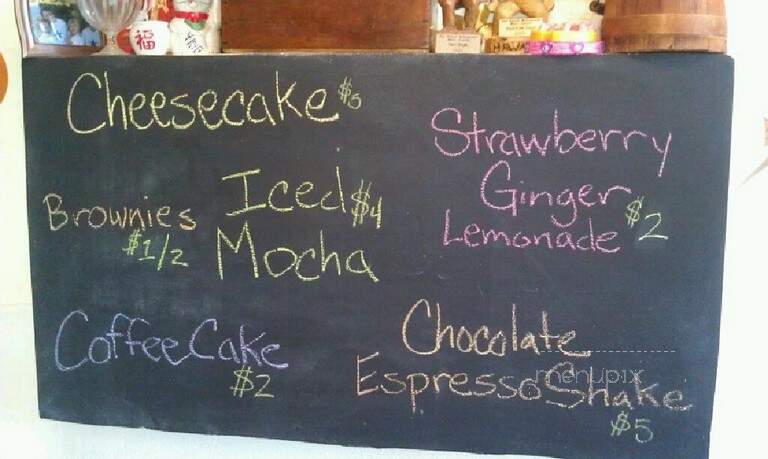 Cheesecake $5
Strawberry
Ginger
Lemonade $2
Brownies
$1/2
Iced $4
Mocha
CoffeeCake
$2
Chocolate
Espresso Shake
$5
menupix
福